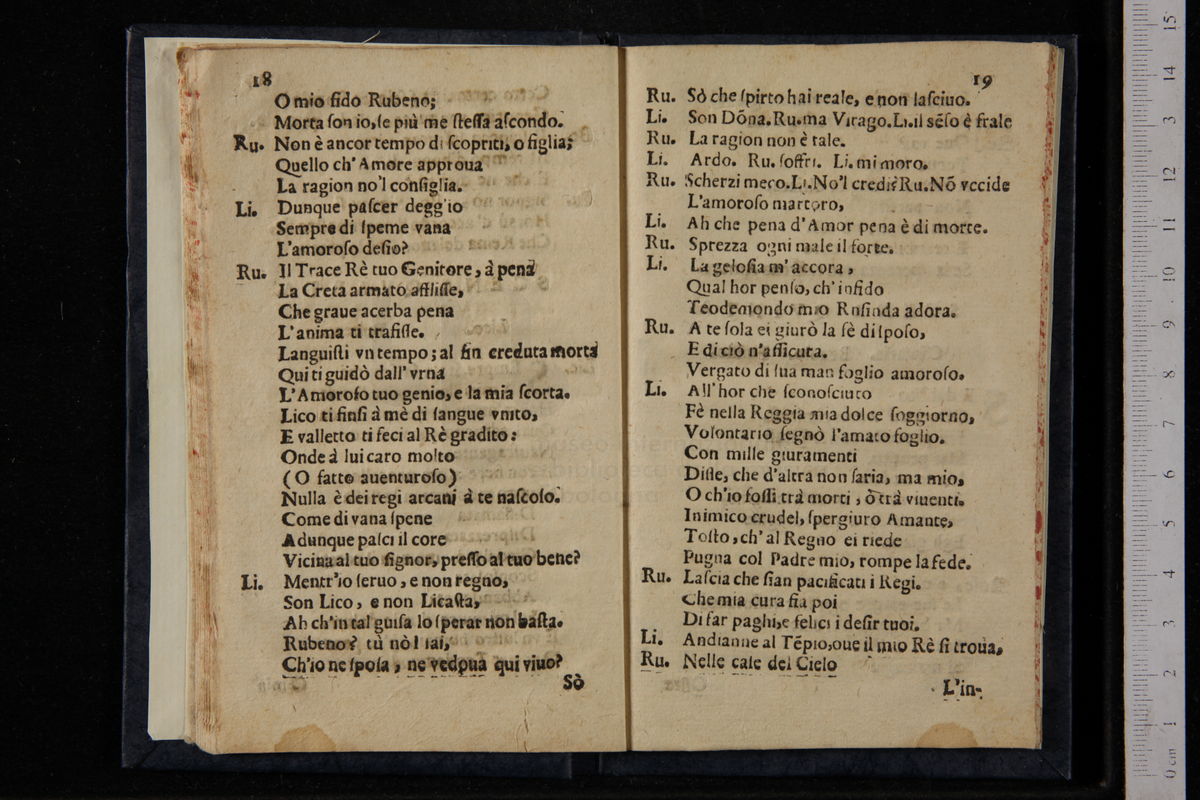 18
O mio fido Rubeno;
Morta ſon io, ſe più me ſteſſa aſcondo.
Ru. Non è ancor tempo di ſcoprirti, o figlia;
Quello ch'Amore approua
La ragion no'l conſiglia.
Li. Dunque paſcer degg'io
Sempre di ſpeme vana
L'amoroſo deſio?
Ru. Il Trace Rè tuo Genitore, à pena
La Creta armato affliſſe,
Che graue acerba pena
L'anima ti trafiſſe.
Languiſti vn tempo; al fin creduta morta
Qui ti guidò dall'vrna
L'Amoroſo tuo genio, e la mia ſcorta.
Lico ti finſi à mè di ſangue vnito,
E valletto ti feci al Rè gradito:
Onde à lui caro molto
(O fatto auenturoſo)
Nulla è dei regi arcani à te naſcoſo.
Come di vana ſpene
Adunque paſci il core
Vicina al tuo ſignor, preſſo al tuo bene?
Li. Mentr'io ſeruo, e non regno,
Son Lico, e non Licaſta,
Ah ch'in tal guiſa lo ſperar non baſta.
Rubeno? tù nòl ſai,
Ch'io ne ſpoſa, ne vedoua qui viuo?
Sò
19
Ru. Sò che ſpirto hai reale, e non laſciuo.
Li. Son Dõna. Ru. ma Virago. Li. il sẽſo è frale
Ru. La ragion non è tale.
Li. Ardo. Ru. ſoffri. Li. mi moro.
Ru. Scherzi meco. Li. No'l credi? Ru. Nõ vccide
L'amoroſo martoro,
Li. Ah che pena d'Amor pena è di morte.
Ru. Sprezza ogni male il forte.
Li. La geloſia m'accora,
Qual hor penſo, ch'infido
Teodemondo mio Roſinda adora.
Ru. A te ſola ei giurò la fè di ſpoſo,
E di ciò n'aſſicura.
Vergato di ſua man foglio amoroſo.
Li. All'hor che ſconoſciuto
Fè nella Reggia mia dolce ſoggiorno,
Volontario ſegnò l'amato foglio.
Con mille giuramenti
Diſſe, che d'altra non ſaria, ma mio,
O ch'io foſſi trà morti, ò trà viuenti.
Inimico crudel, ſpergiuro Amante,
Toſto, ch'al Regno ei riede
Pugna col Padre mio, rompe la fede.
Ru. Laſcia che ſian pacificati i Regi.
Che mia cura fia poi
Di far paghi, e felici i deſir tuoi.
Li. Andianne al Tẽpio, oue il mio Rè ſi troua,
Ru. Nelle caſe del Cielo
L'in-